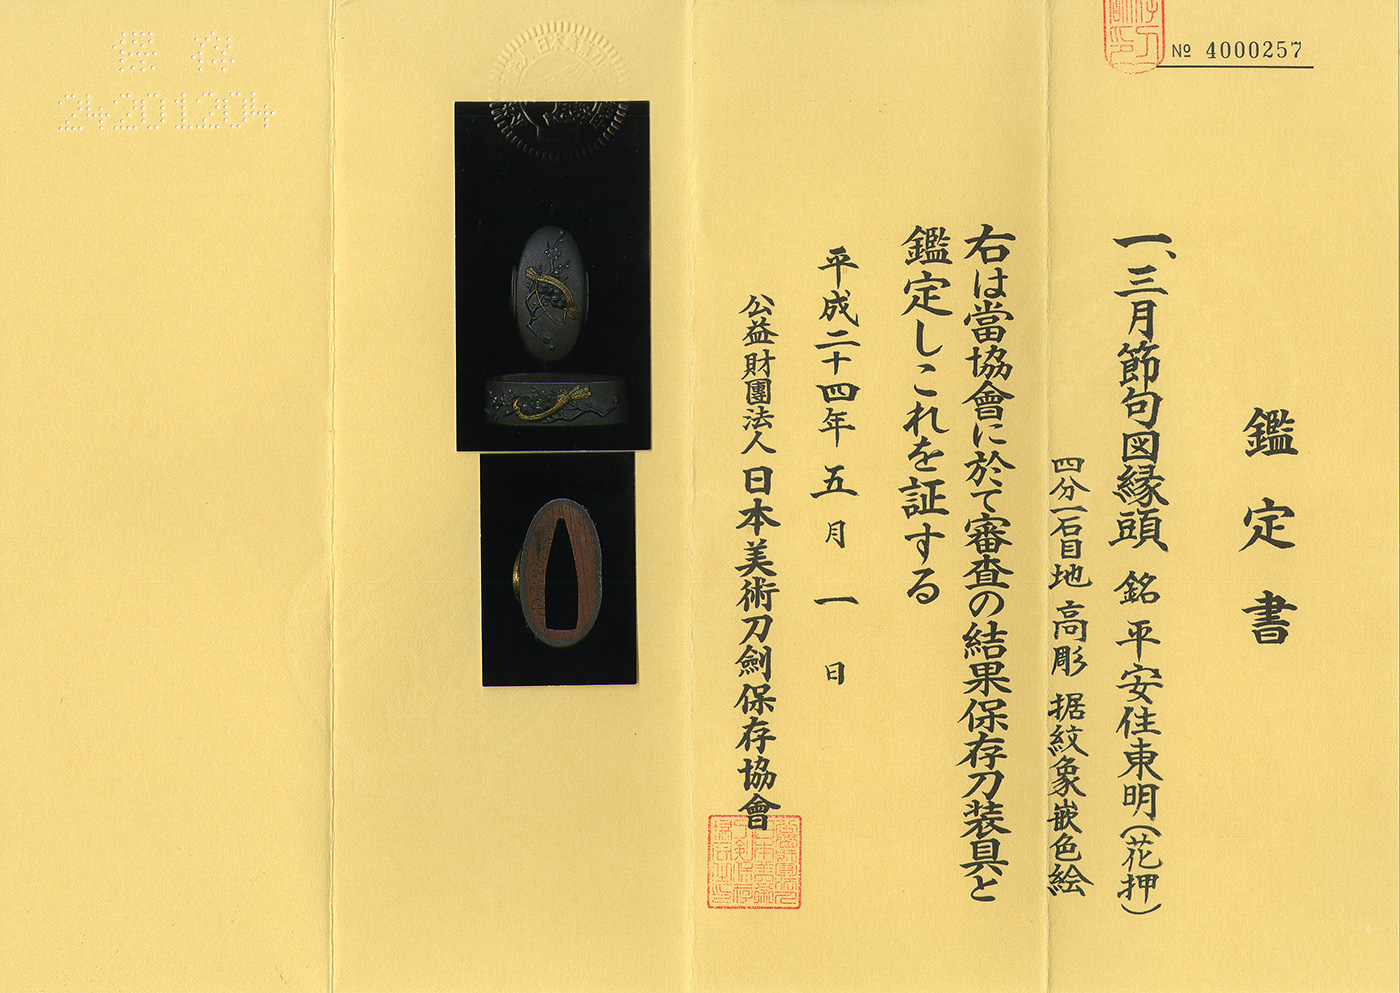 № 4000257
鑑定書
一、三月節句図縁頭 銘 平安住東明(花押)
四分一石目地 高彫 据紋象嵌色絵
右は當協會に於て審査の結果保存刀装具と
鑑定しこれを証する
平成二十四年五月一日
公益財團法人 日本美術刀劍保存協會
保存
24201204